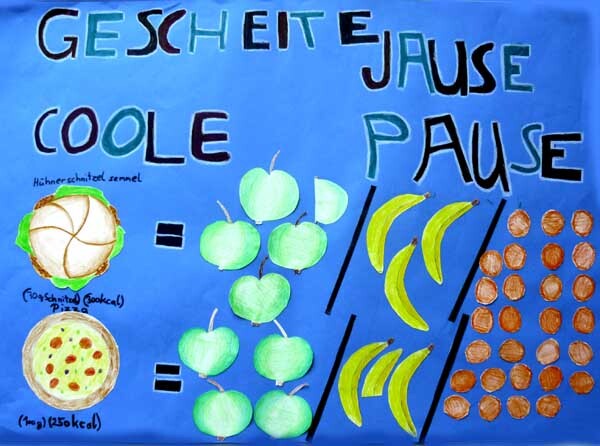 GESCHEITE JAUSE
COOLE PAUSE
Hühnerschnitzel semmel
=
(50g Schnitzel) (300kcal)
Pizza
=
(100g) (250kcal)